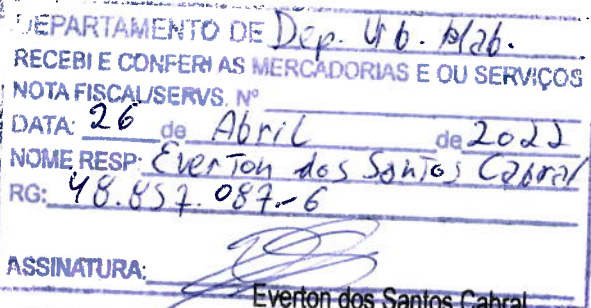 DEPARTAMENTO DE Dep. Urb. Hab.
RECEBI E CONFERI AS MERCADORIAS E OU SERVIÇOS
NOTA FISCAL/SERVS. Nº
DATA: 26 de Abril de 2022
NOME RESP: Everton dos Santos Cabral
RG: 48.857.087-6
ASSINATURA:
Everton dos Santos Cabral